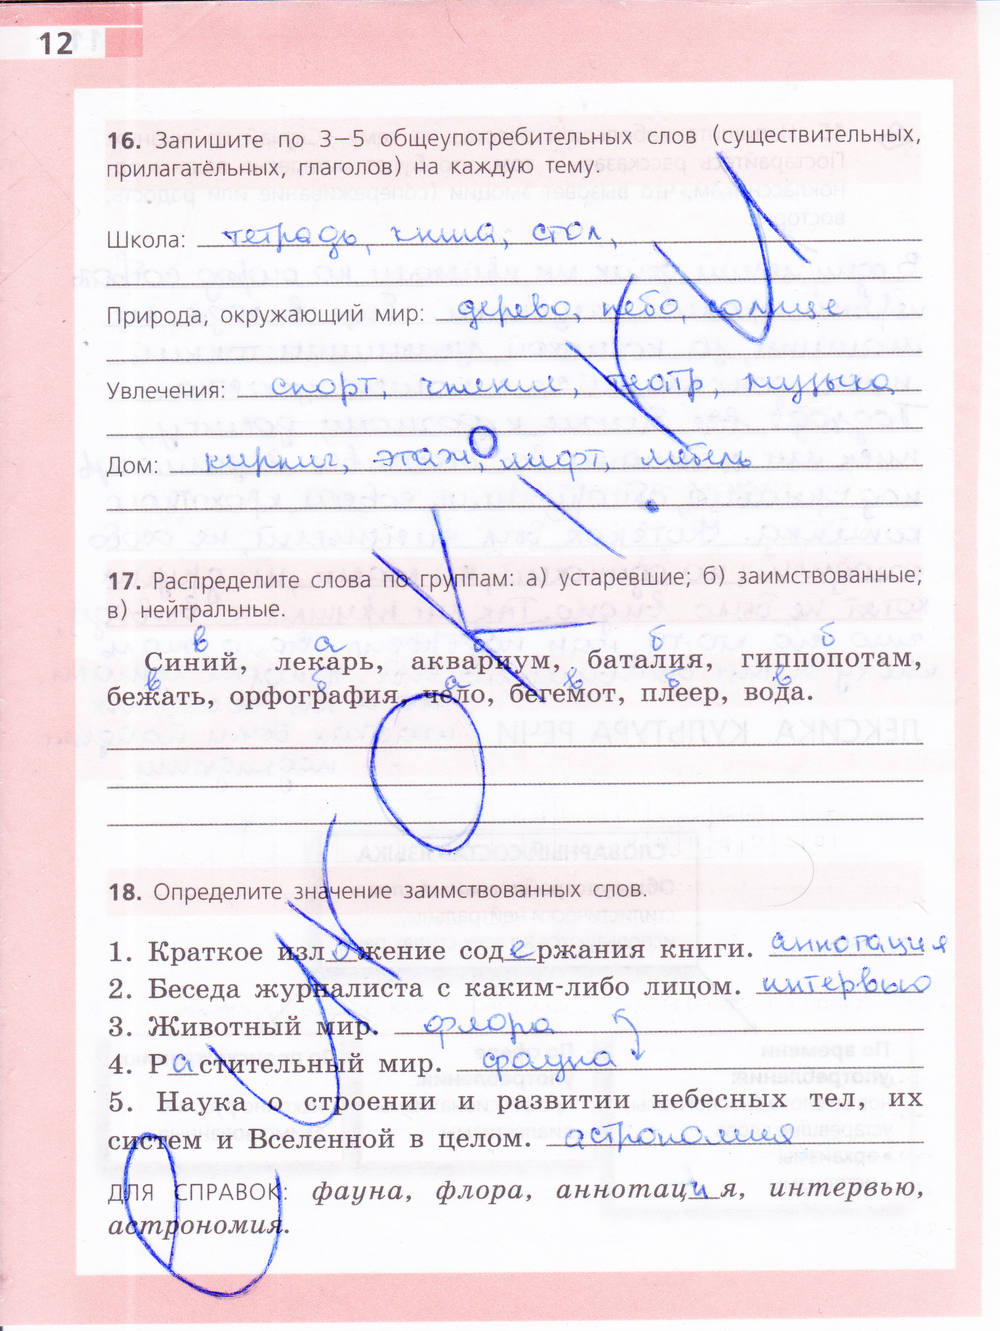 12
16. Запишите по 3–5 общеупотребительных слов (существительных,
прилагательных, глаголов) на каждую тему.
Школа: тетрадь, книга, стол,
Природа, окружающий мир: дерево, небо, солнце
Увлечения: спорт, чтение, театр, музыка
Дом: кирпич, этаж, лифт, мебель
17. Распределите слова по группам: а) устаревшие; б) заимствованные;
в) нейтральные.
в а б б б
Синий, лекарь, аквариум, баталия, гиппопотам,
в б а в б в
бежать, орфография, чело, бегемот, плеер, вода.
18. Определите значение заимствованных слов.
1. Краткое изложение содержания книги. аннотация
2. Беседа журналиста с каким-либо лицом. интервью
3. Животный мир. флора
4. Растительный мир. фауна
5. Наука о строении и развитии небесных тел, их
систем и Вселенной в целом. астрономия
ДЛЯ СПРАВОК: фауна, флора, аннотация, интервью,
астрономия.